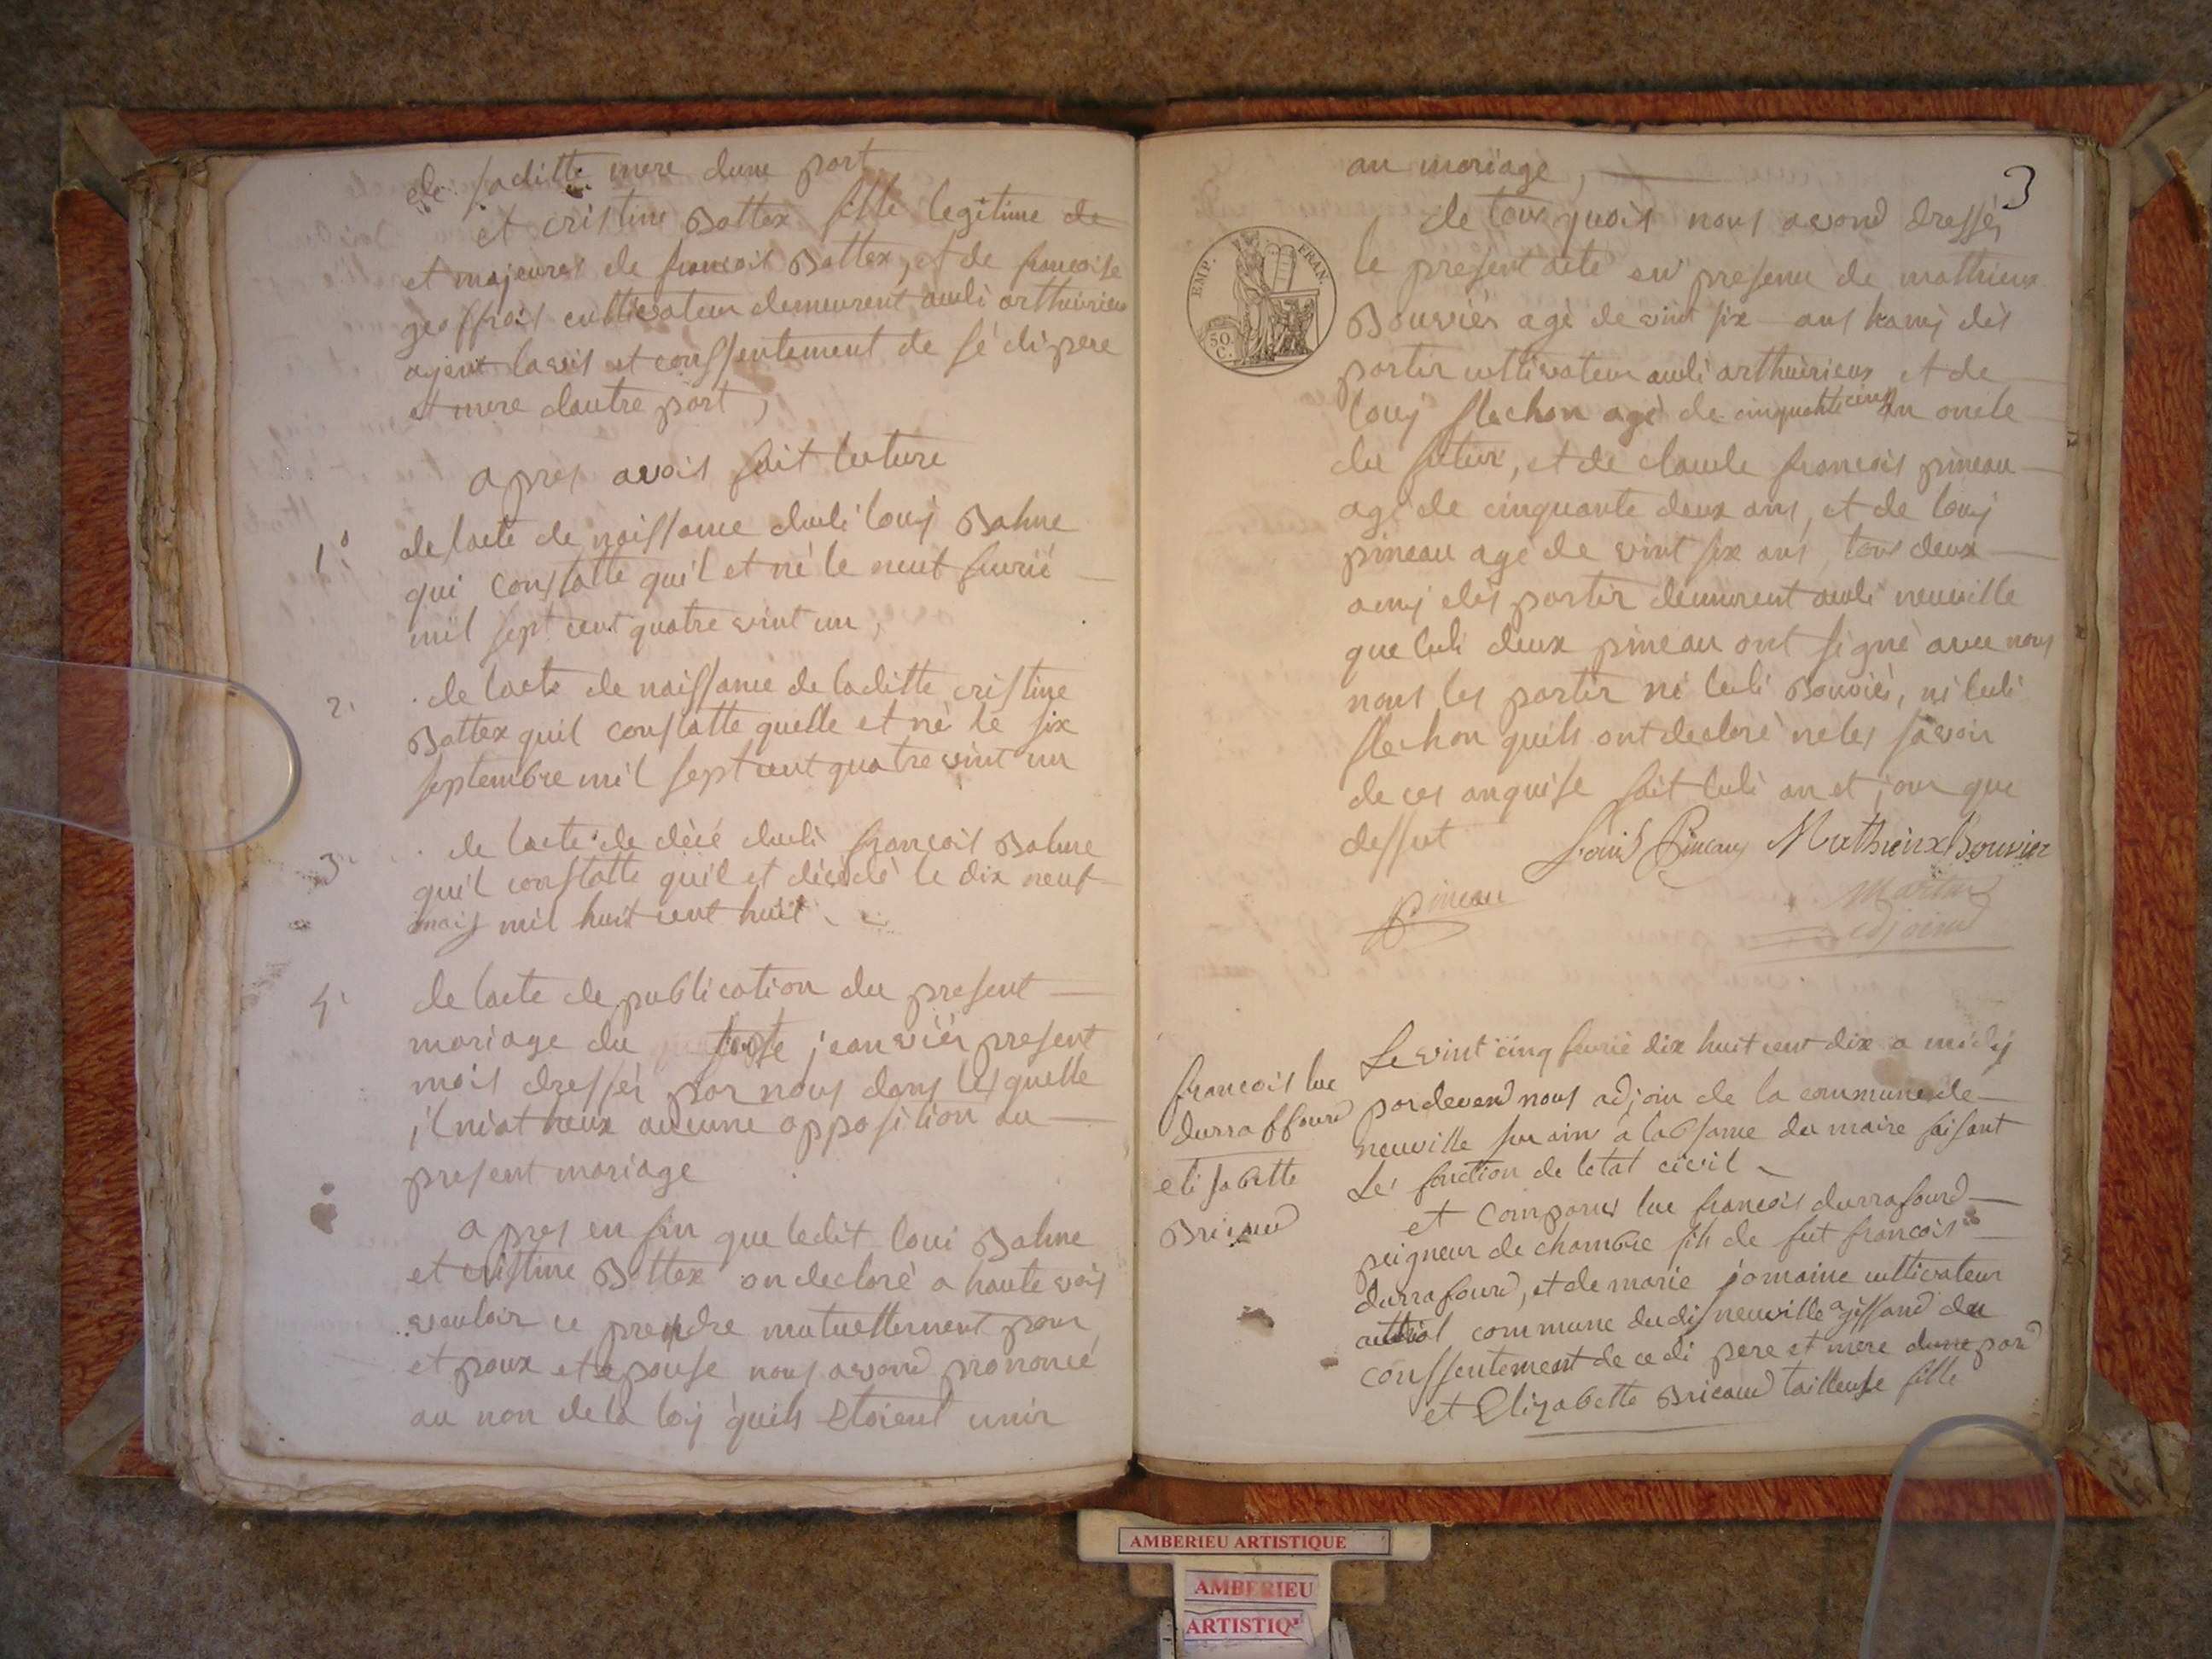 de saditte mere dune part
et cristine Battex fille legitime de
et majeures de francois Battex, et de francoise
geoffrois cultivateur demeurent audi arthuirieux
ajent lavis et conssentement de sé di pere
et mere dautre part,
apres avois fait lecture
1° de lacte de naissance dudi louj Bahue
qui constatte quil et né le neuf fevrié
mil sept cent quatre vint un,
2. de lacte de naissance de laditte cristine
Battex quil constatte quelle et né le six
septembre mil sept cent quatre vint un
3 de lacte de décé dudi francois Bahue
quil constatte quil et décédé le dix neuf
mil huit cent huit
4 de lacte de publication du present
mariage du janviér present
mois dressér par nous dans lesquelle
il niat heux aucunne opposition au
present mariage
apres en fin que ledit loui Bahue
et cristine Battex on declaré a haute vois
vouloir ce prendre mutuellement pour
et poux et epouse nous avond prononcé
au non de la loij quils etoient unir
3
au mariage,
de tous quois nous avond dressér
EMP. FRAN.
50. C.
le present acte en presence de mathieux
Bouviér agé de vint six ans hamj dés
partir cultivateur audi arthuirieux et de
louj flechon agé de cinquante cinq an oncle
du futur, et de claude francois pineau
agé de cinquante deux ans, et de louj
pineau agé de vint six ans, tous deux
amj des partir demeurent audi neuville
que ludi deux pineau ont signé avec nous
nous les partir ni ludi Bouviér, ni ludi
flechon quils ont declaré ne les savoir
de ces anquise fait ludi an et jour que
dessut Louis Pineau Mathieux Bouvier
pineau Martin
adjoind
Le vint cinq fevrié dix huit cent dix a midij
francois luc
durraffourd
elisabette
Bricaud
par devend nous adjoin de la commune de
neuville sur ain a labsance du maire faisant
Les fonction de letat civil
et comparus luc francois durrafourd
peigneur de chambre fils de fut francois
durrafourd, et de marie jomaine cultivateur
commune dudis neuville agissand du
conssentement de ce di pere et mere dune pard
et Elizabette Bricaud tailleuse fille
AMBERIEU ARTISTIQUE
AMBERIEU
ARTISTIQ